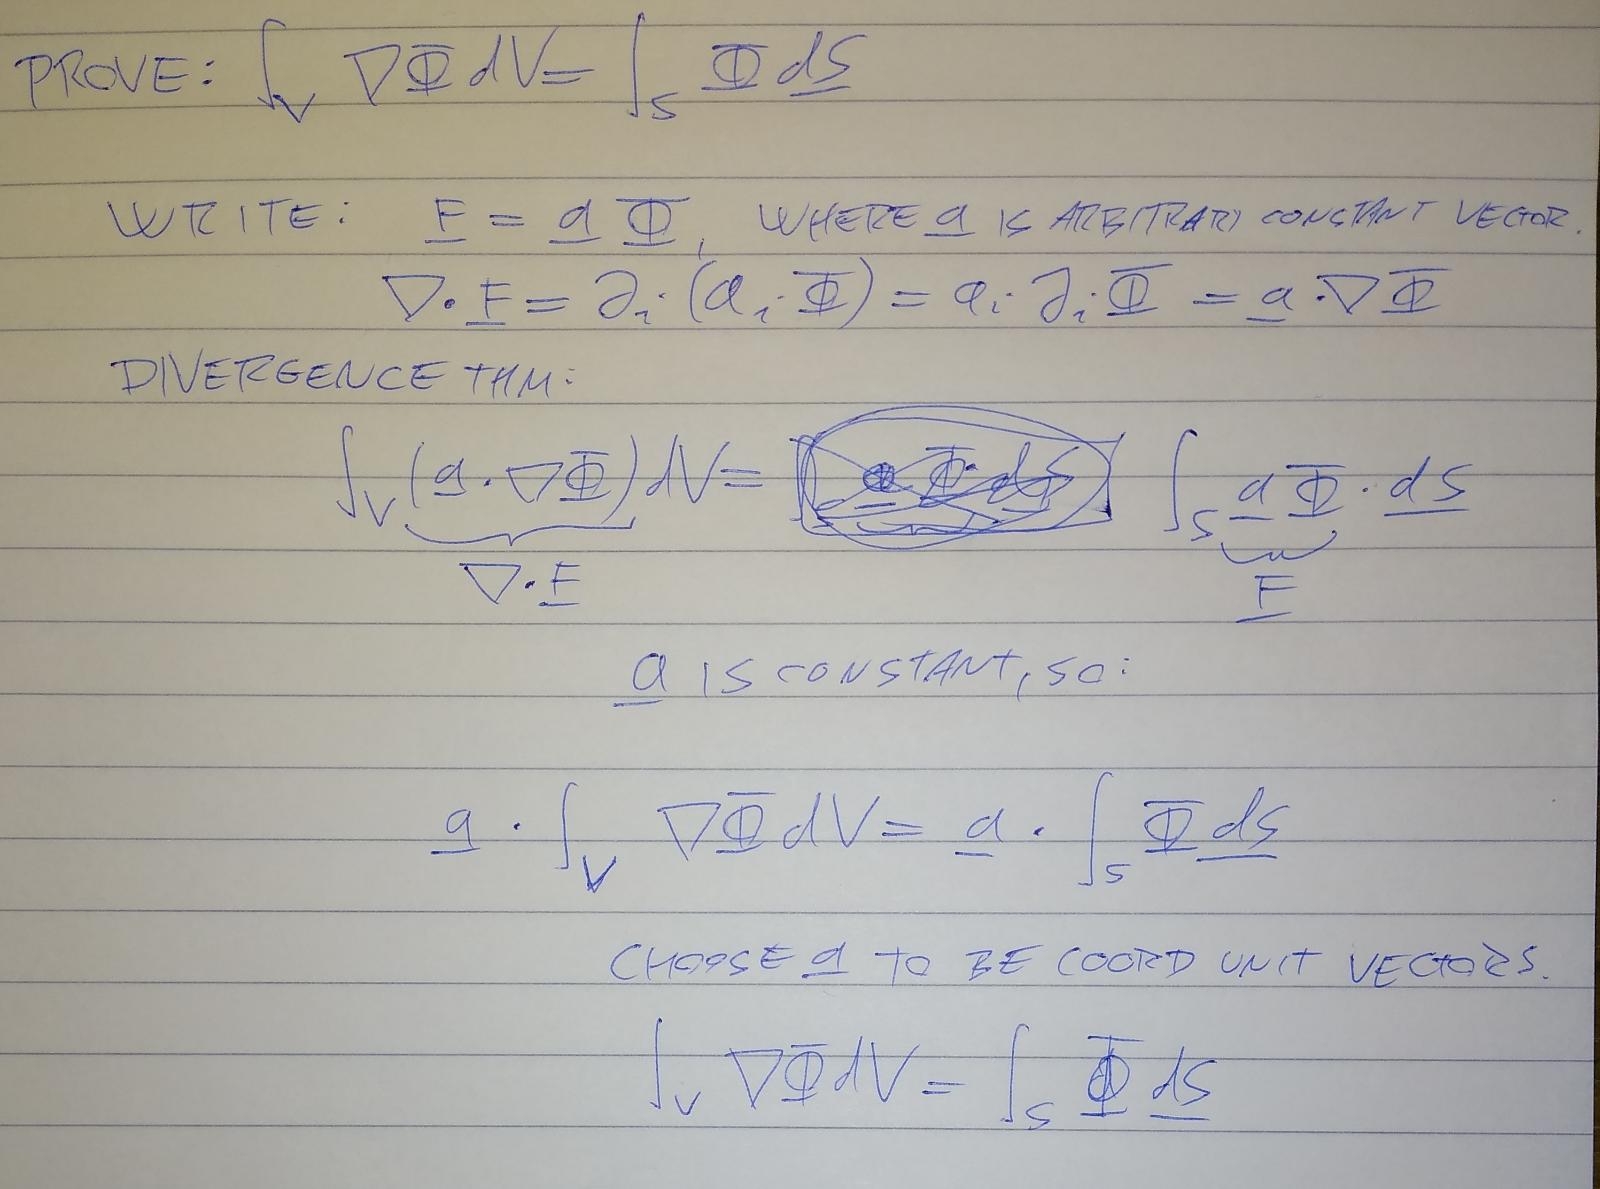 PROVE: ∫_V ∇Φ dV = ∫_S Φ d̲S̲
WRITE: F̲ = a̲ Φ, WHERE a̲ IS ARBITRARY CONSTANT VECTOR.
∇·F̲ = ∂_i (a_i Φ) = a_i ∂_i Φ = a̲·∇Φ
DIVERGENCE THM:
∫_V (a̲·∇Φ) dV = ∫_S a̲Φ·d̲S̲
∇·F̲ F̲
a̲ IS CONSTANT, SO:
a̲ · ∫_V ∇Φ dV = a̲ · ∫_S Φ d̲S̲
CHOOSE a̲ TO BE COORD UNIT VECTORS.
∫_V ∇Φ dV = ∫_S Φ d̲S̲